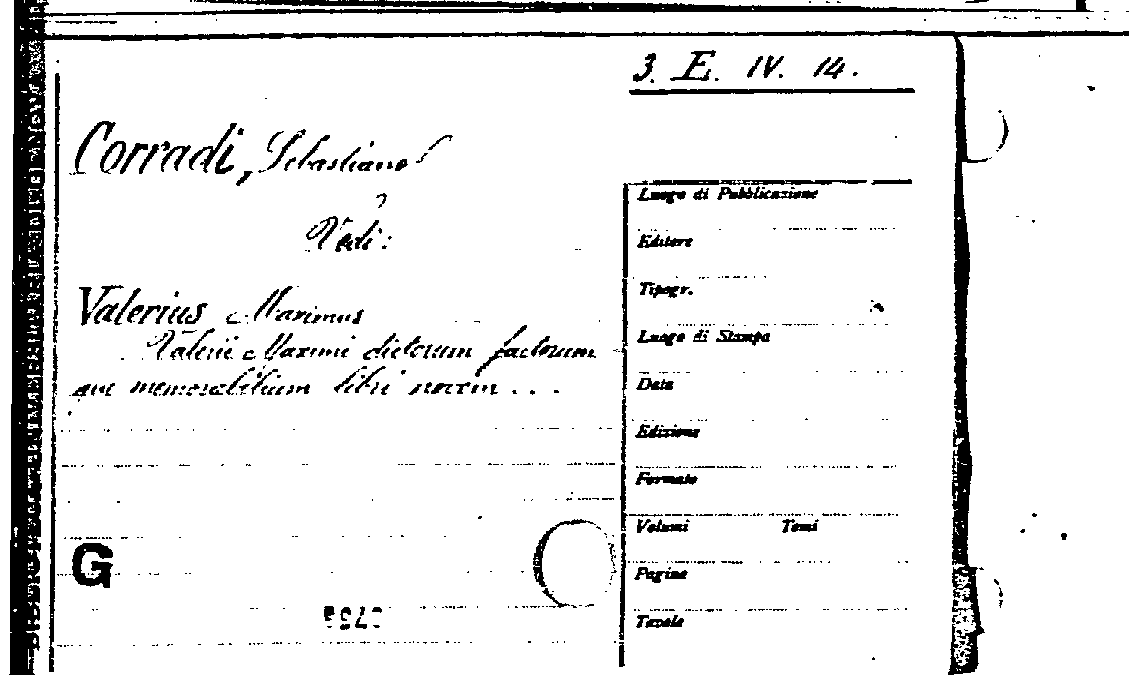 3. E. IV. 14.
Corradi, Sebastiano
Vedi:
Valerius Maximus
Valerii Maximi dictorum factorum
que memorabilium libri novem . . .
G
Luogo di Pubblicazione
Editore
Tipogr.
Luogo di Stampa
Data
Edizione
Formato
Volumi Tomi
Pagine
Tavole